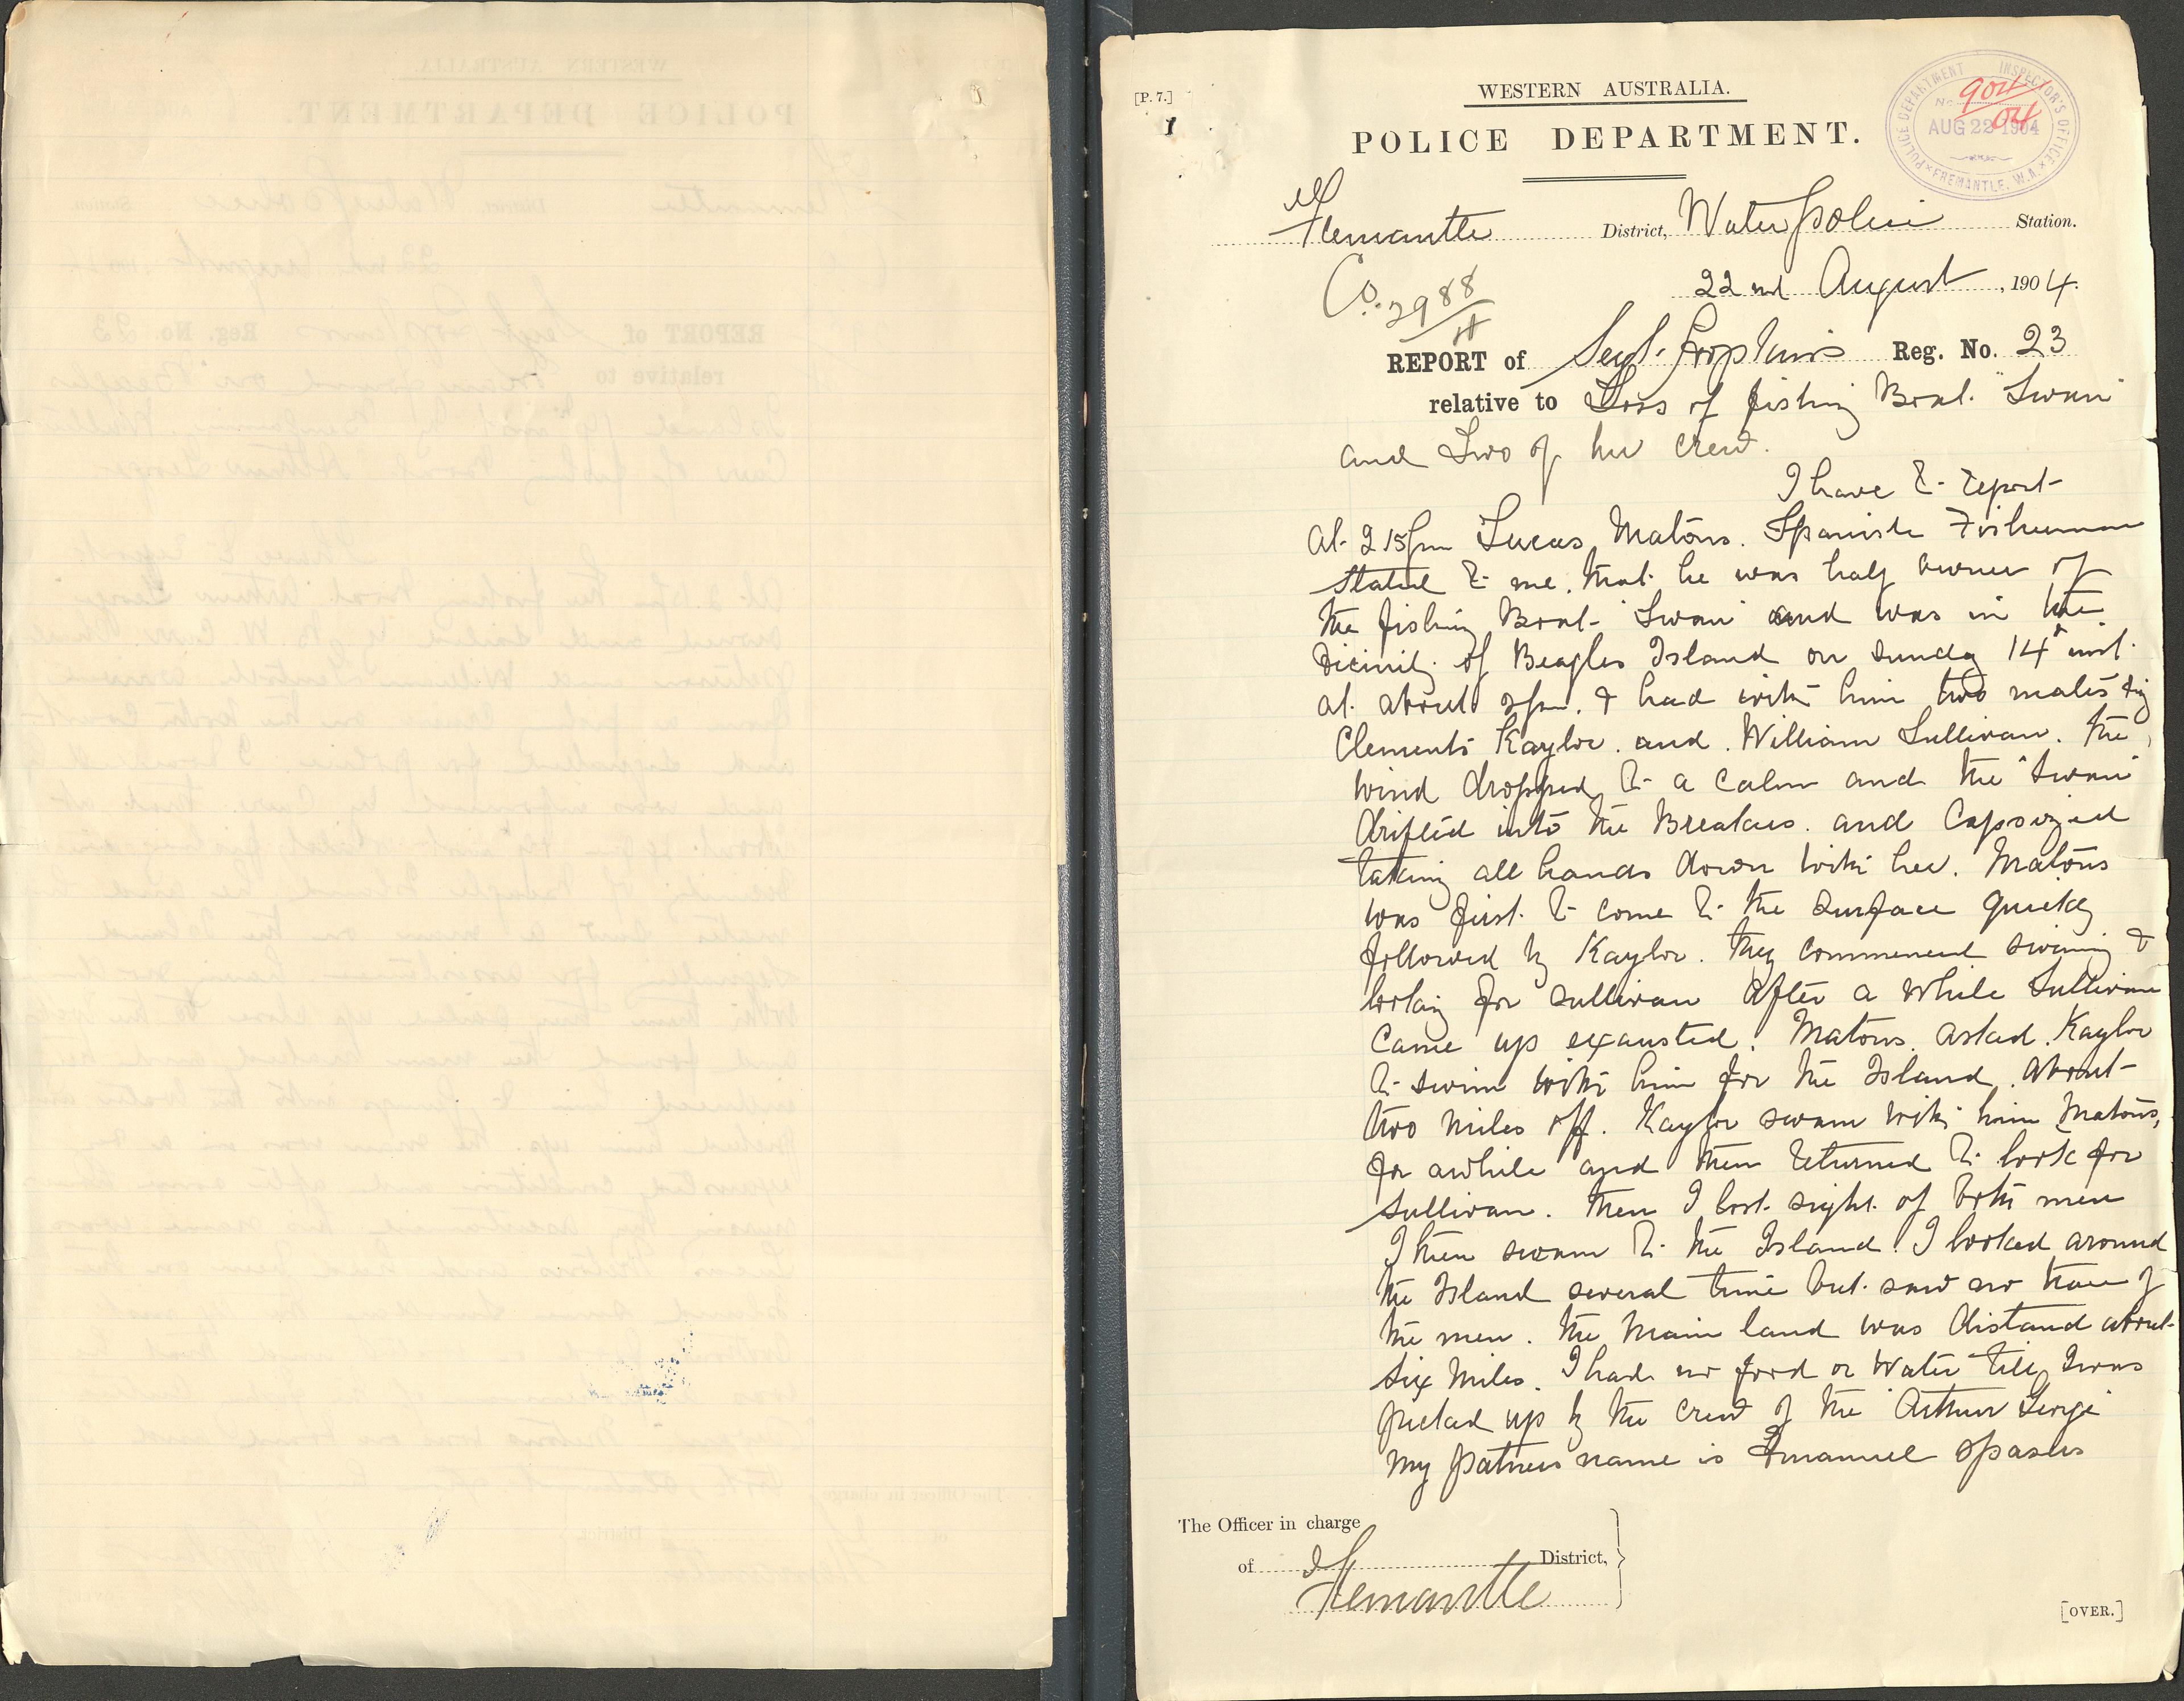 [P. 7.]
1
WESTERN AUSTRALIA.
POLICE DEPARTMENT.
POLICE DEPARTMENT INSPECTOR'S OFFICE
No. 904/04
AUG 22 1904
FREMANTLE. W.A.
Fremantle District, Water Police Station.
Co. 2988
22nd August, 1904.
REPORT of Sergt. Hopkins Reg. No. 23
relative to Loss of fishing Boat. "Swan"
and Two of her Crew.
I have to report
at 2 15pm Lucas Matons. Spanish Fisherman
stated to me. that he was half owner of
the fishing Boat "Swan" and was in the
Vicinity of Beagles Island on Sunday 14th inst.
at about 2pm. & had with him two mates
Clements Kaylor. and William Sullivan. the
wind dropped to a Calm and the "Swan"
drifted into the Breakers. and Capsized
taking all hands down with her. Matons
was first to come to the surface quickly
followed by Kaylor. they commenced swiming &
looking for Sullivan After a while Sullivan
came up exausted. Matons. asked Kaylor
to swim with him for the Island. about
two miles off. Kaylor swam with him Matons,
for awhile and then returned to look for
Sullivan. then I lost sight of both men
I then swam to the Island. I looked around
the Island several time but saw no trace of
the men. the Main land was distand about
six miles. I had no food or water till I was
picked up by the crew of the "Arthur George"
my patners name is Emanuel Spasus
The Officer in charge
of Fremantle District,
[OVER.]